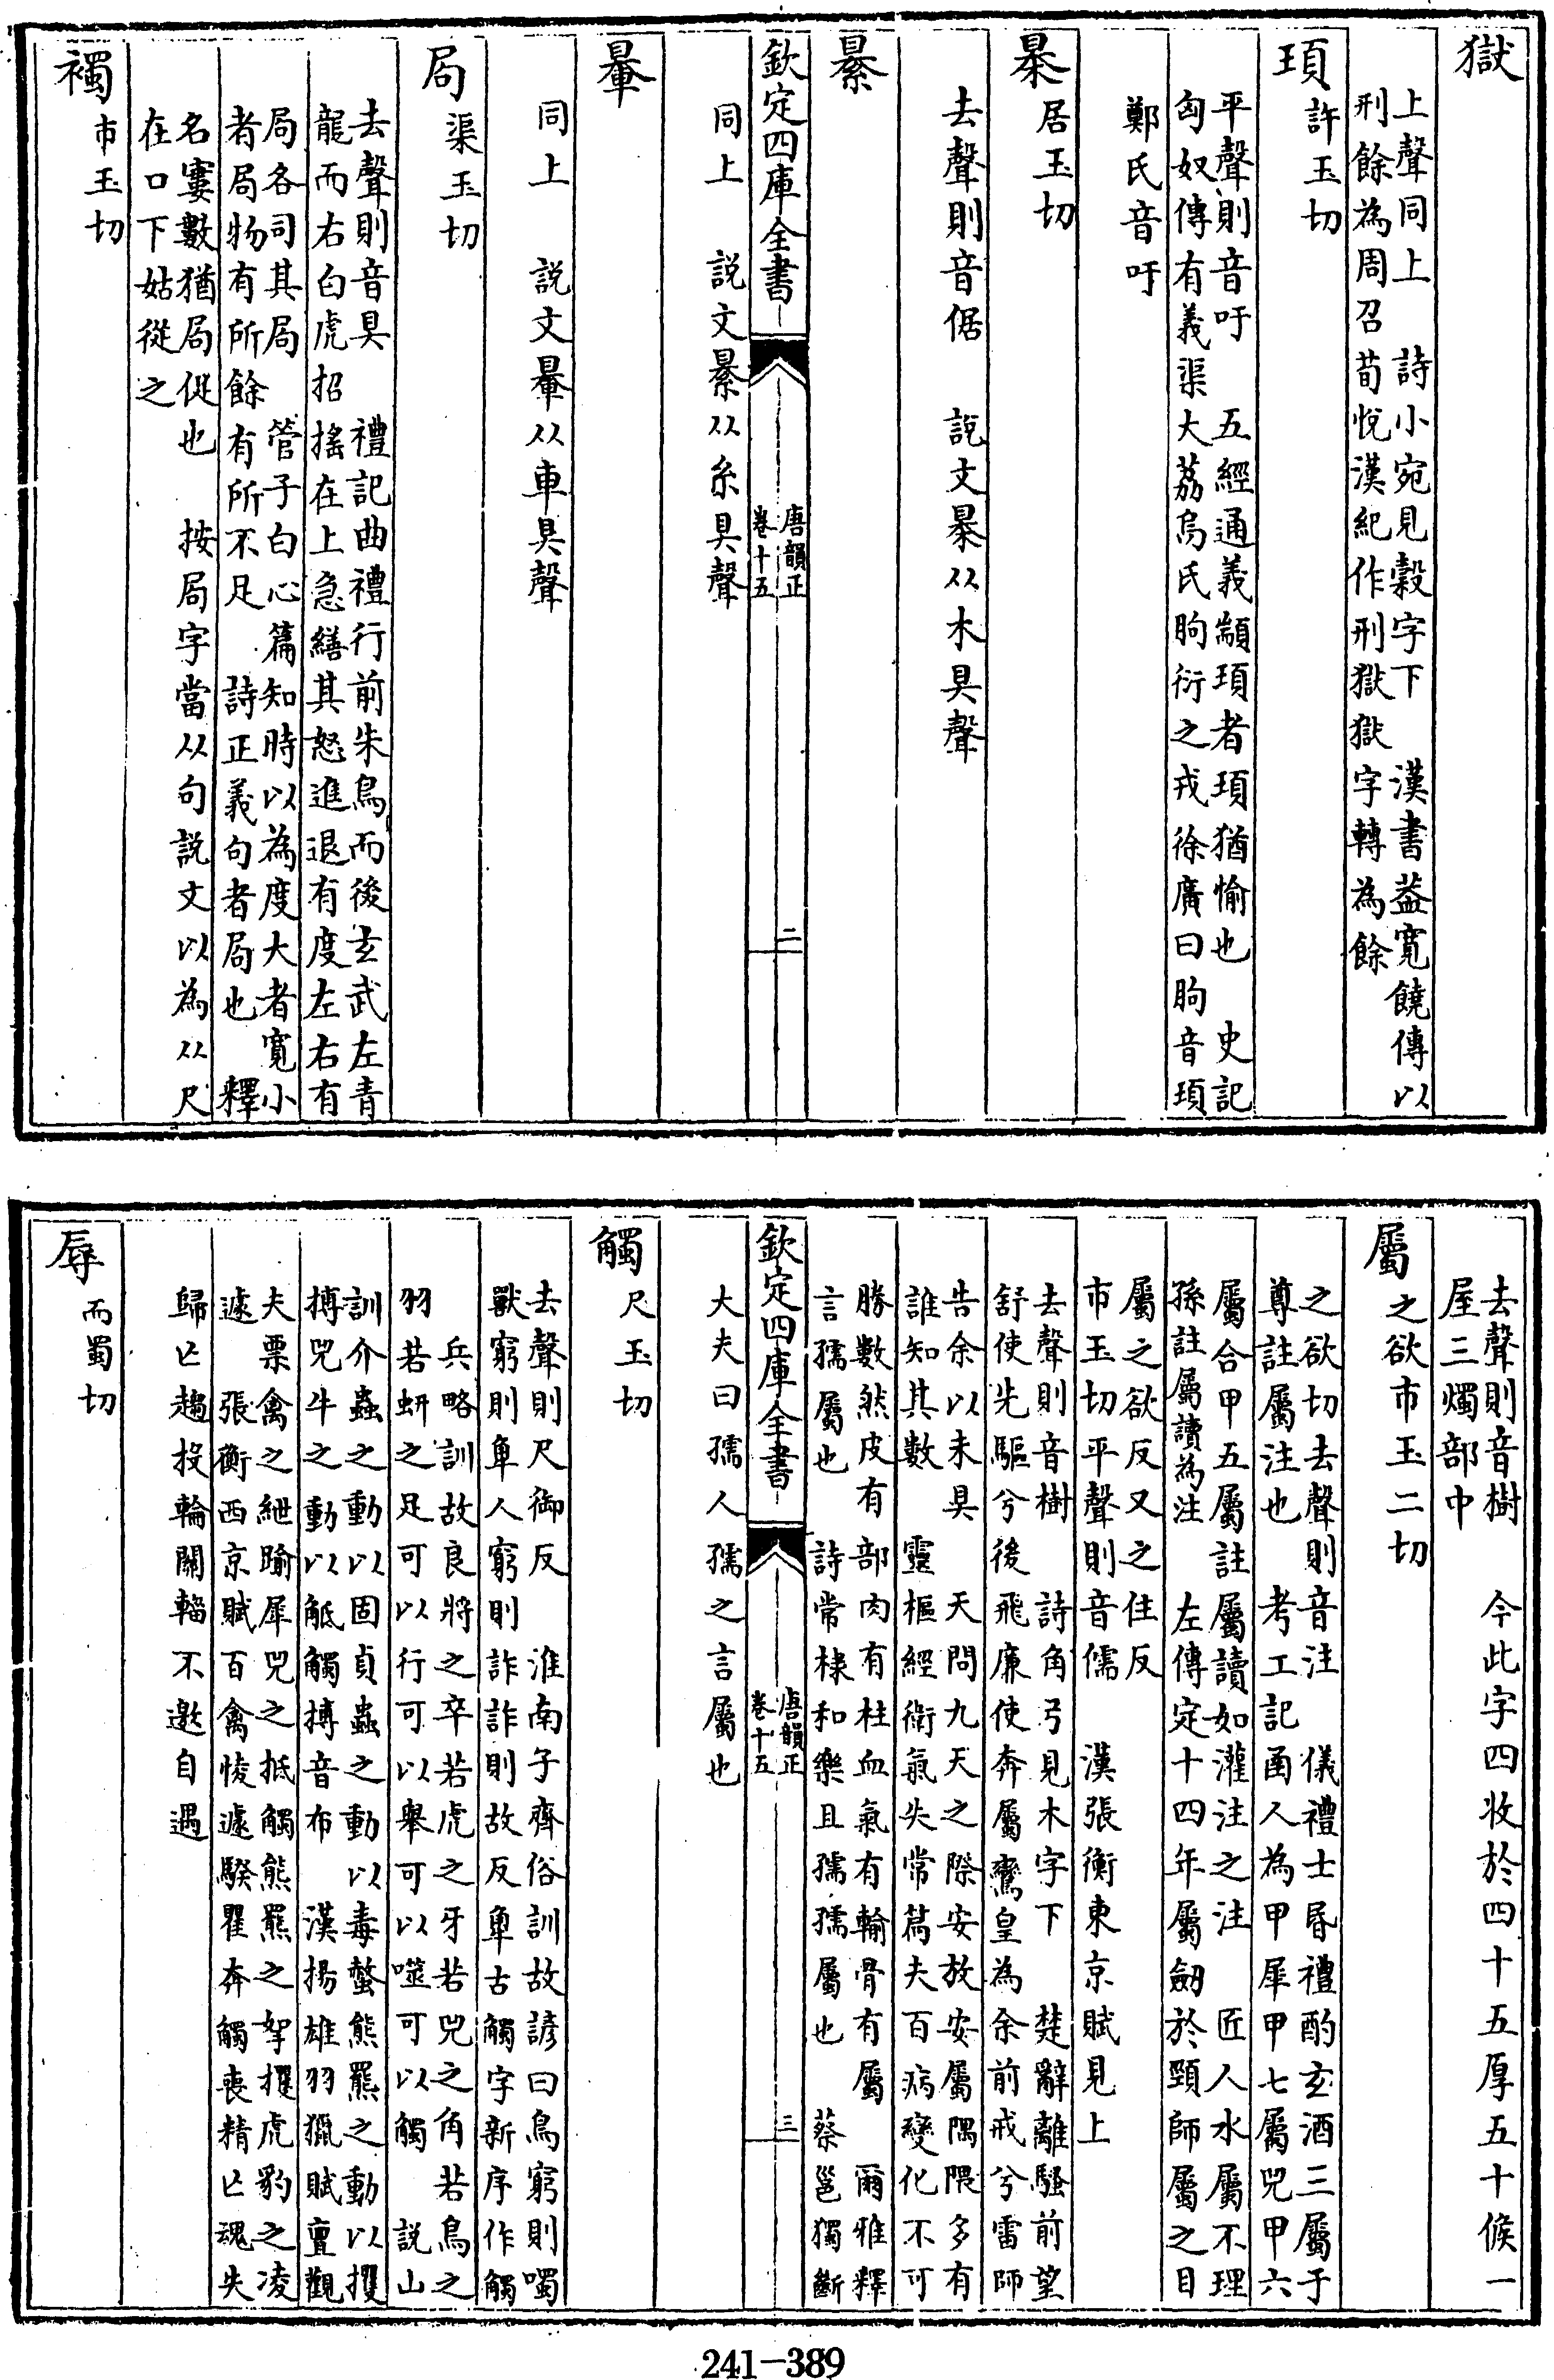 獄
上聲同上　詩小宛見穀字下　漢書葢寛饒傳以
刑餘為周召荀悅漢紀作刑獄獄字轉為餘
頊許玉切
平聲則音吁　五經通義顓頊者頊猶愉也　史記
匈奴傳有義渠大荔烏氏朐衍之戎徐廣曰朐音頊
鄭氏音吁
梮居玉切
去聲則音倨　說文梮从木具聲
㬥
欽定四庫全書
唐韻正
卷十五
二
同上　說文㬥从糸具聲
暈
同上　說文暈从車具聲
局渠玉切
去聲則音具　禮記曲禮行前朱鳥而後玄武左青
龍而右白虎招搖在上急繕其怒進退有度左右有
局各司其局　管子白心篇知時以為度大者寛小
者局物有所餘有所不足　詩正義句者局也　釋
名寠數猶局促也　按局字當从句說文以為从尺
在口下姑從之
襡市玉切
去聲則音樹　今此字四收於四十五厚五十候一
屋三燭部中
屬之欲市玉二切
之欲切去聲則音注　儀禮士昏禮酌玄酒三屬于
尊註屬注也　考工記函人為甲犀甲七屬兕甲六
屬合甲五屬註屬讀如灌注之注　匠人水屬不理
孫註屬讀為注　左傳定十四年屬劒於頸師屬之目
屬之欲反又之住反
市玉切平聲則音儒　漢張衡東京賦見上
去聲則音樹　詩角弓見木字下　楚辭離騷前望
舒使先驅兮後飛廉使奔屬鸞皇為余前戒兮雷師
告余以未具　天問九天之際安放安屬隅隈多有
誰知其數　靈樞經衛氣失常篇夫百病變化不可
勝數然皮有部肉有柱血氣有輸骨有屬　爾雅釋
言孺屬也　詩常棣和樂且孺孺屬也　蔡邕獨斷
欽定四庫全書
唐韻正
卷十五
三
大夫曰孺人孺之言屬也
觸尺玉切
去聲則尺御反　淮南子齊俗訓故諺曰鳥窮則噣
獸窮則𧢻人窮則詐詐則故反𧢻古觸字新序作觸
兵略訓故良將之卒若虎之牙若兕之角若鳥之
羽若蚈之足可以行可以舉可以噬可以觸　說山
訓介蟲之動以固貞蟲之動以毒螫熊羆之動以攫
搏兕牛之動以觝觸搏音布　漢揚雄羽獵賦亶觀
夫票禽之紲隃犀兕之抵觸熊羆之挐攫虎豹之凌
遽　張衡西京賦百禽㥄遽騤瞿奔觸喪精亡魂失
歸亡趨投輪關輻不邀自遇
辱而蜀切
241—389